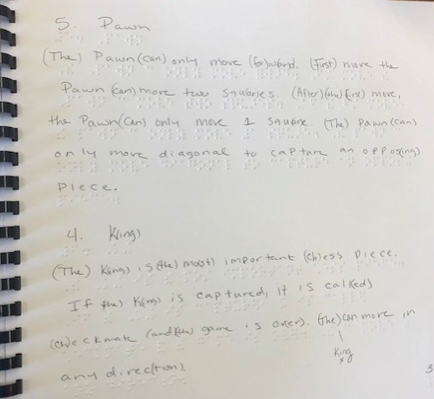 5. Pawn
(The) Pawn (can) only move (for)ward. (First) move the
Pawn (can) more two squares. (After) (the) (first) move,
the Pawn (can) only move 1 square. (The) Pawn (can)
only move diagonal to capture an oppos(ing)
piece.
4. K(ing)
(The) K(ing) is (the) most) important (ch)ess piece.
If (the) K(ing) is captured, it is call(ed)
(ch)eckmate (and) (the) game is over). (the) can move in
King
any direc(tion)
3